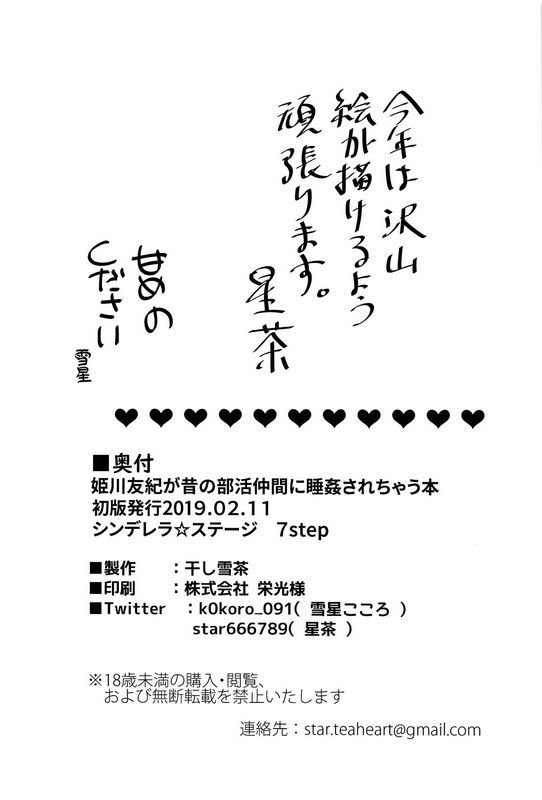 今年は沢山
絵が描けるよう
頑張ります。
星茶
せめの
しださい
雪星
♥♥♥♥♥♥♥♥♥♥♥
■奥付
姫川友紀が昔の部活仲間に睡姦されちゃう本
初版発行2019.02.11
シンデレラ☆ステージ 7step
■製作 :干し雪茶
■印刷 :株式会社 栄光様
■Twitter :k0koro_091( 雪星こころ )
star666789( 星茶 )
※18歳未満の購入・閲覧、
および無断転載を禁止いたします
連絡先:star.teaheart@gmail.com